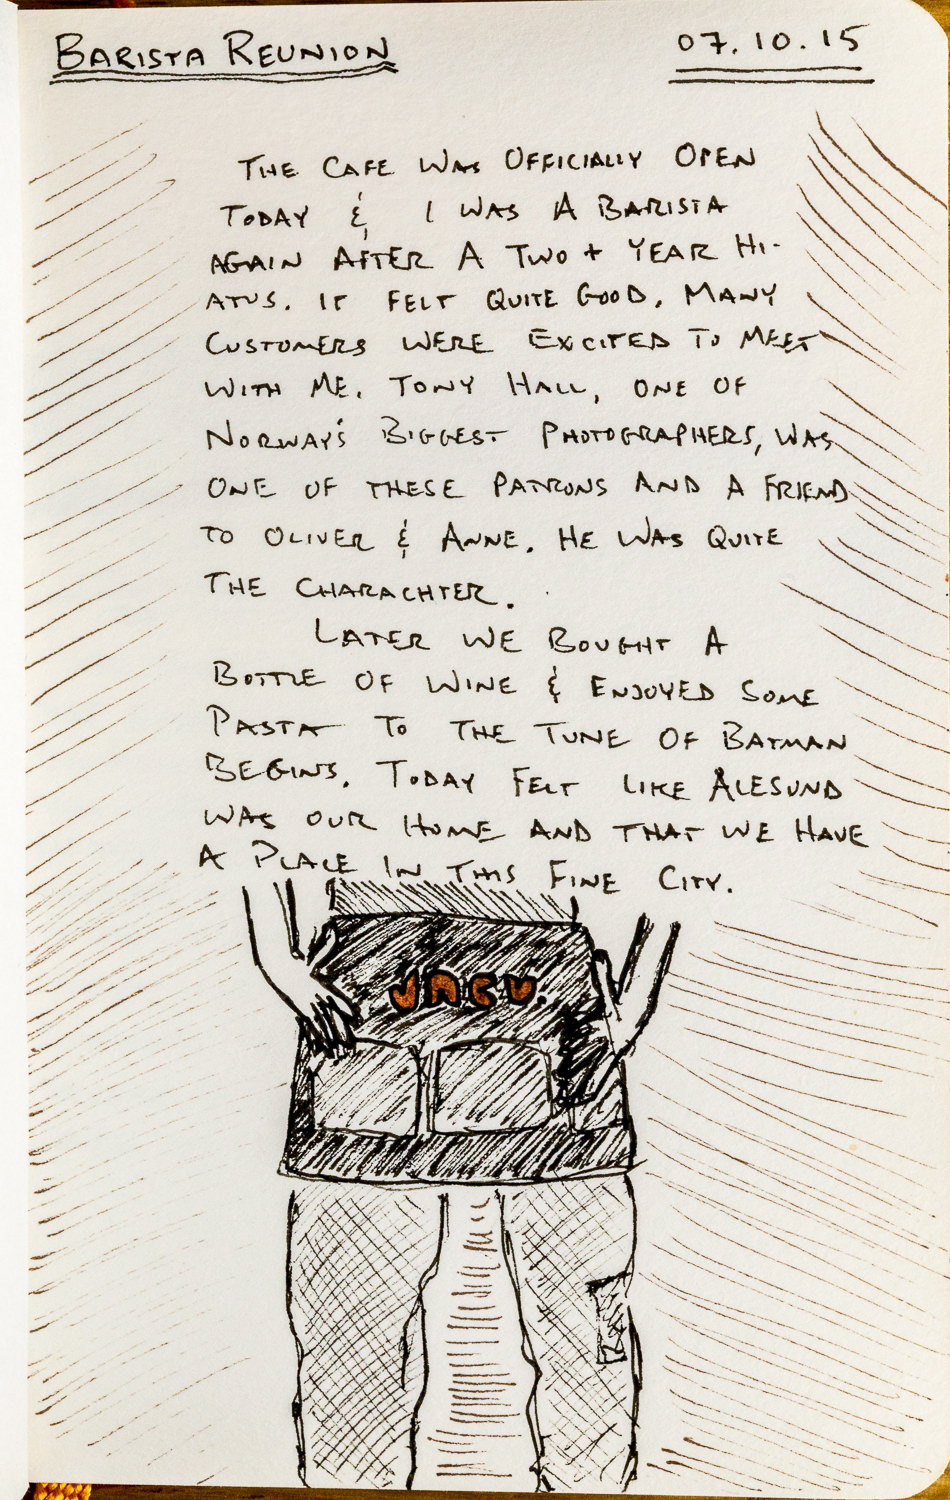 BARISTA REUNION
07.10.15
THE CAFE WAS OFFICIALLY OPEN
TODAY & I WAS A BARISTA
AGAIN AFTER A TWO + YEAR HI-
ATUS. IT FELT QUITE GOOD. MANY
CUSTOMERS WERE EXCITED TO MEET
WITH ME. TONY HALL, ONE OF
NORWAY'S BIGGEST PHOTOGRAPHERS, WAS
ONE OF THESE PATRONS AND A FRIEND
TO OLIVER & ANNE. HE WAS QUITE
THE CHARACHTER.
LATER WE BOUGHT A
BOTTLE OF WINE & ENJOYED SOME
PASTA TO THE TUNE OF BATMAN
BEGINS. TODAY FELT LIKE ALESUND
WAS OUR HOME AND THAT WE HAVE
A PLACE IN THIS FINE CITY.
JACU.